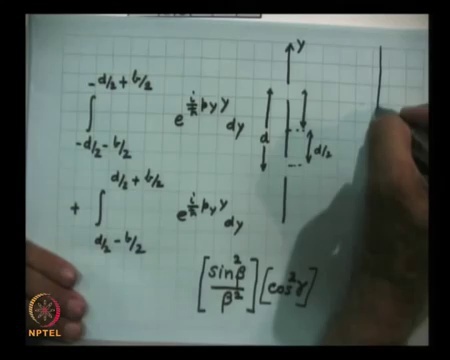 -d/2 + b/2
∫ e^{i/ħ p_y y} dy
-d/2 - b/2
d/2 + b/2
+ ∫ e^{i/ħ p_y y} dy
d/2 - b/2
y
d
d/2
[sin²β/β²] [cos²γ]
NPTEL